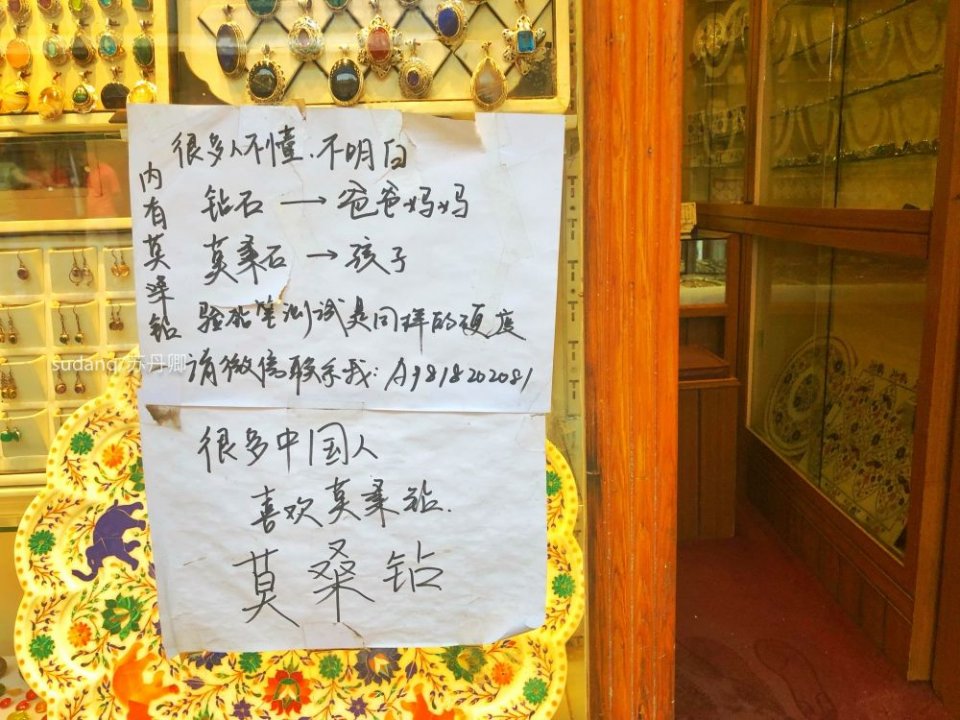 很多人不懂.不明白
内有莫桑钻
钻石 → 爸爸妈妈
莫桑石 → 孩子
验钻笔测试是同样的硬度
请微信联系我: A9818202081
sudang/苏丹卿
很多中国人
喜欢莫桑钻.
莫桑钻